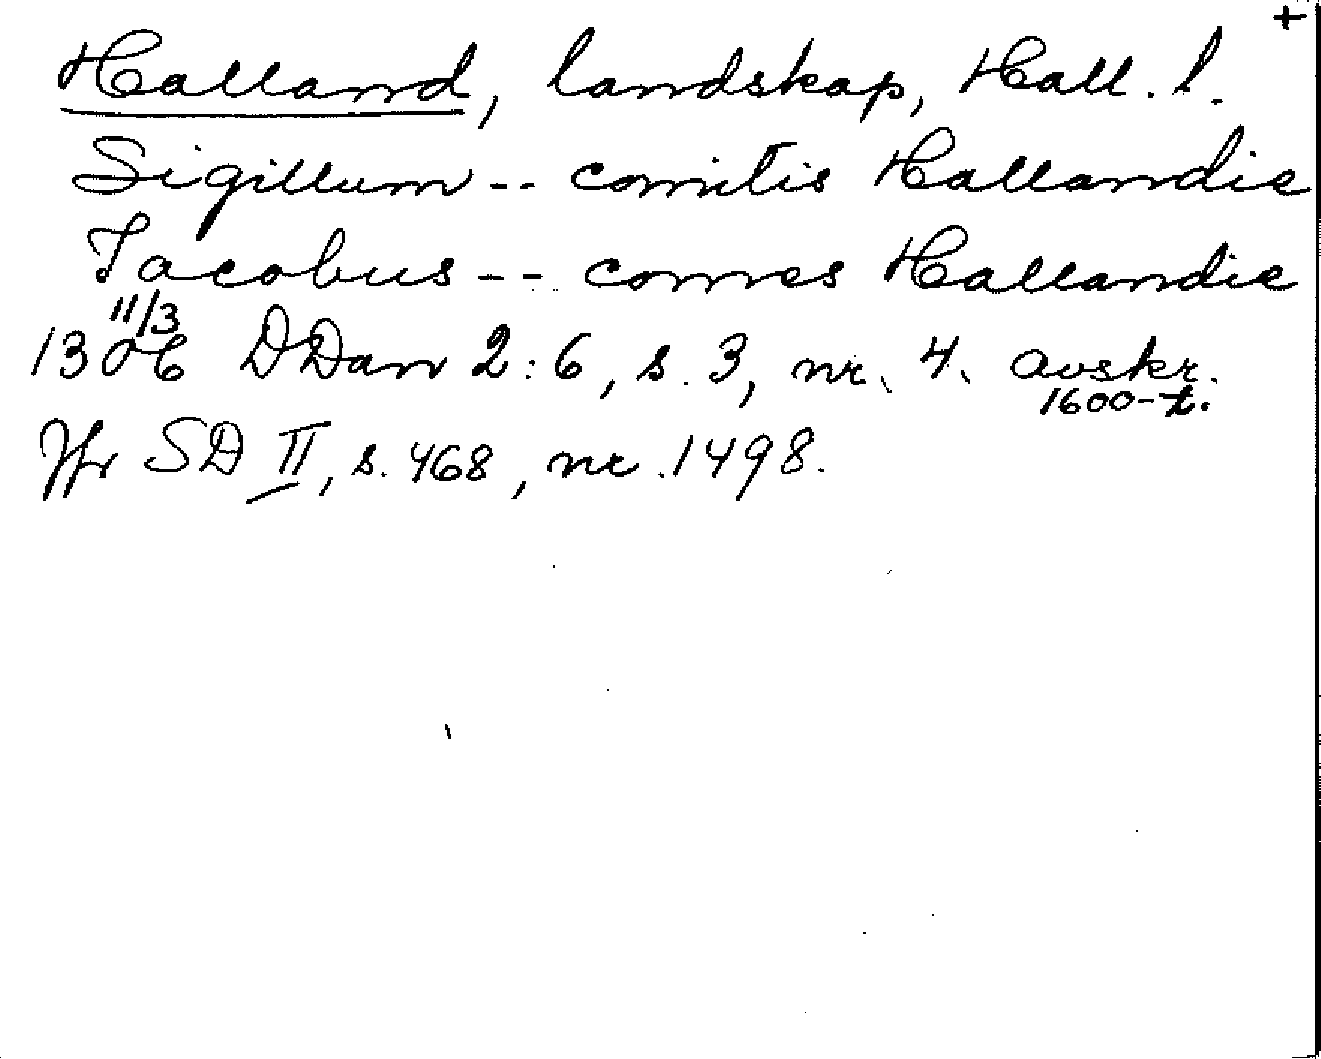 +
Halland, landskap, Hall. l.
Sigillum -- comitis Hallandie
Jacobus -- comes Hallandie
11/3
1306 DDan 2:6, s. 3, nr. 4. avskr.
1600-t.
Jfr SD II, s. 468, nr. 1498.